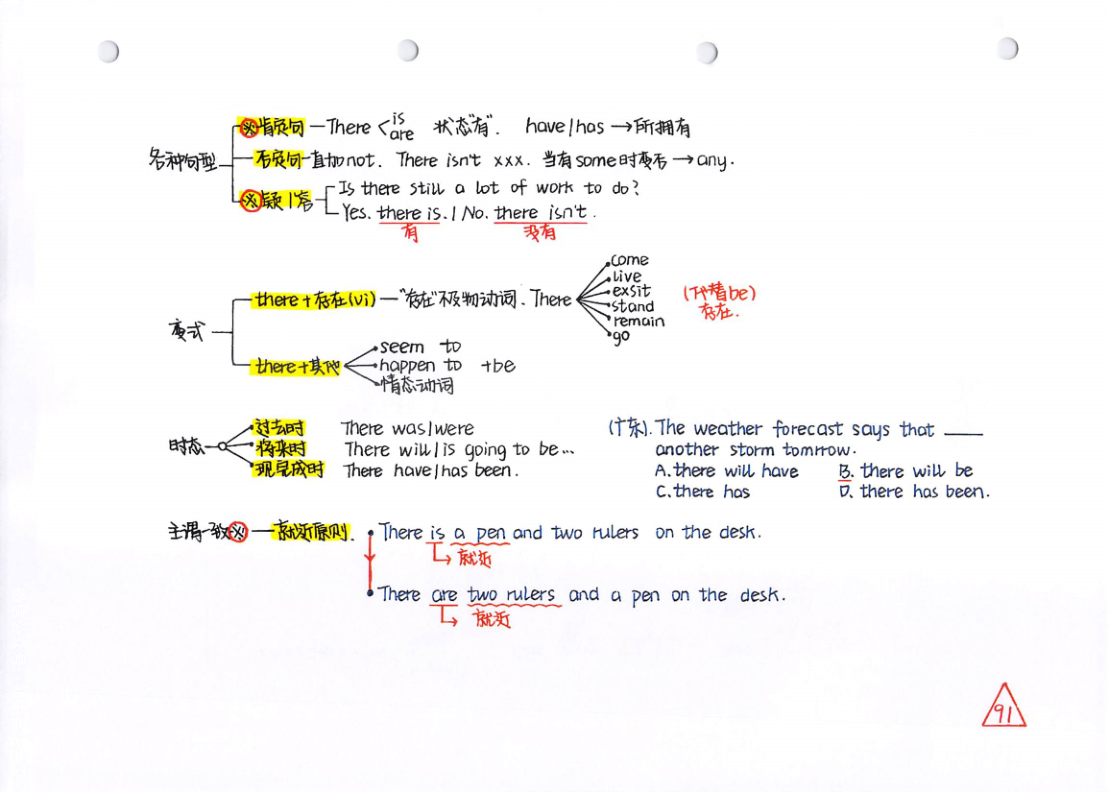 ※肯定句—There is/are 状态"有". have/has→所拥有
各种句型 否定句—直加not. There isn't xxx. 当有some时变否→any.
※疑/答 Is there still a lot of work to do?
Yes. there is. / No. there isn't.
有 没有
come
live
there+存在(vi)—"存在"不及物动词. There exsit (代替be)
stand 存在.
remain
go
变式
seem to
there+其他 happen to +be
情态动词
过去时 There was/were
时态 将来时 There will/is going to be…
现完成时 There have/has been.
(广东). The weather forecast says that ___
another storm tomrrow.
A. there will have B. there will be
C. there has D. there has been.
主谓一致※—就近原则. There is a pen and two rulers on the desk.
就近
There are two rulers and a pen on the desk.
就近
91